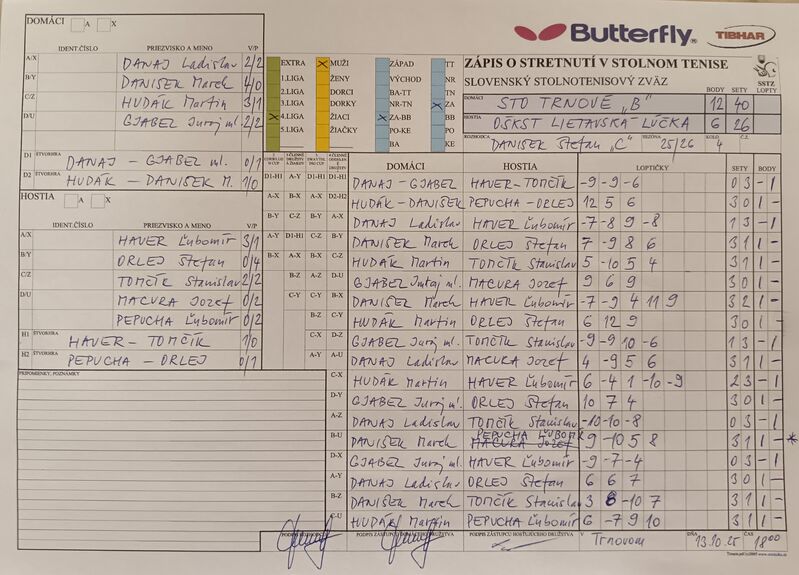 DOMÁCI A X
IDENT.ČÍSLO PRIEZVISKO A MENO V/P
A/X DANAJ Ladislav 2/2
B/Y DANISEK Marek 4/0
C/Z HUDÁK Martin 3/1
D/U GJABEL Juraj ml. 2/2
D1 ŠTVORHRA DANAJ - GJABEL ml. 0/1
D2 ŠTVORHRA HUDÁK - DANISEK M. 1/0
HOSTIA A X
IDENT.ČÍSLO PRIEZVISKO A MENO V/P
A/X HAVER Ľubomír 3/1
B/Y ORLEJ Štefan 0/4
C/Z TOMČÍK Stanislav 2/2
D/U MACURA Jozef 0/2
PEPUCHA Ľubomír 0/2
H1 ŠTVORHRA HAVER - TOMČÍK 1/0
H2 ŠTVORHRA PEPUCHA - ORLEJ 0/1
PRIPOMIENKY, POZNÁMKY
EXTRA
1.LIGA
2.LIGA
3.LIGA
4.LIGA
5.LIGA
MUŽI
ŽENY
DORCI
DORKY
ŽIACI
ŽIAČKY
ZÁPAD
VÝCHOD
BA-TT
NR-TN
ZA-BB
PO-KE
BA
TT
NR
TN
ZA
BB
PO
KE
Butterfly
TIBHAR
ZÁPIS O STRETNUTÍ V STOLNOM TENISE
SLOVENSKÝ STOLNOTENISOVÝ ZVÄZ
SSTZ
BODY SETY LOPTY
DOMÁCI STO TRNOVÉ "B" 12 40
HOSTIA OŠKST LIETAVSKÁ LÚČKA 6 26
ROZHODCA DANISEK Štefan "C" SEZÓNA 25/26 KOLO 4 Č.Z.
DOMÁCI HOSTIA LOPTIČKY SETY BODY
D1-H1 DANAJ - GJABEL HAVER - TOMČÍK -9 -9 -6 0 3 - 1
D2-H2 HUDÁK - DANISEK PEPUCHA - ORLEJ 12 5 6 3 0 1 -
A-X DANAJ Ladislav HAVER Ľubomír -7 -8 9 -8 1 3 - 1
B-Y DANISEK Marek ORLEJ Štefan 7 -9 8 6 3 1 1 -
C-Z HUDÁK Martin TOMČÍK Stanislav 5 -10 5 4 3 1 1 -
D-U GJABEL Juraj ml. MACURA Jozef 9 6 9 3 0 1 -
B-X DANISEK Marek HAVER Ľubomír -7 -9 4 11 9 3 2 1 -
C-Y HUDÁK Martin ORLEJ Štefan 6 12 9 3 0 1 -
D-Z GJABEL Juraj ml. TOMČÍK Stanislav -9 -9 10 -6 1 3 - 1
A-U DANAJ Ladislav MACURA Jozef 4 -9 5 6 3 1 1 -
C-X HUDÁK Martin HAVER Ľubomír 6 -4 1 -10 -9 2 3 - 1
D-Y GJABEL Juraj ml. ORLEJ Štefan 10 7 4 3 0 1 -
A-Z DANAJ Ladislav TOMČÍK Stanislav -10 -10 -8 0 3 - 1
B-U DANISEK Marek PEPUCHA ĽUBOMÍR MACURA Jozef 9 -10 5 8 3 1 1 - *
D-X GJABEL Juraj ml. HAVER Ľubomír -9 -7 -4 0 3 - 1
A-Y DANAJ Ladislav ORLEJ Štefan 6 6 7 3 0 1 -
B-Z DANISEK Marek TOMČÍK Stanislav 3 8 -10 7 3 1 1 -
C-U HUDÁK Martin PEPUCHA Ľubomír 6 -7 9 10 3 1 1 -
PODPIS ZÁSTUPCU DOMÁCEHO DRUŽSTVA PODPIS ZÁSTUPCU HOSŤUJÚCEHO DRUŽSTVA V Trnovom DŇA 13.10.25 ČAS 18:00